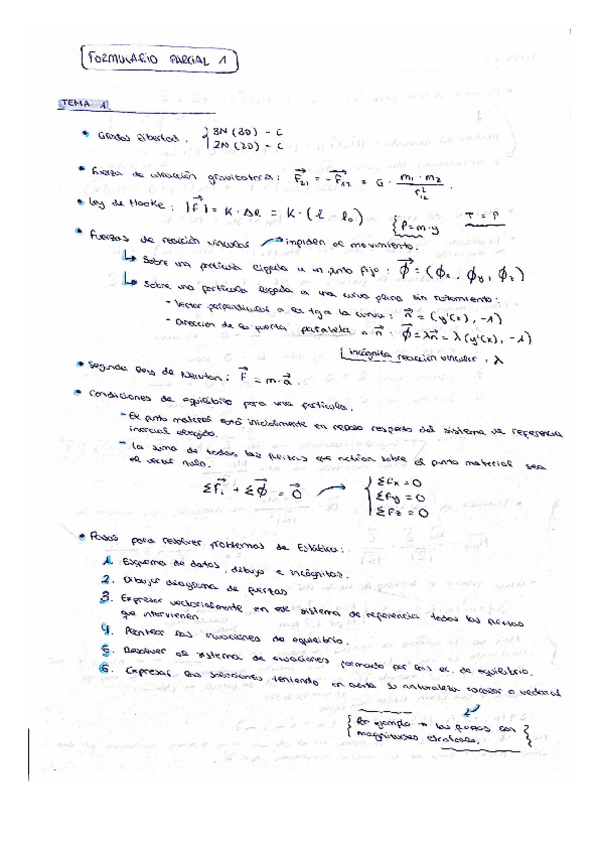 FORMULARIO PARCIAL 1
TEMA 1
• Grados libertad. { 3N (3D) - C
2N (2D) - C
• Fuerza de atracción gravitatoria: F⃗21 = -F⃗12 = G · m1 · m2 / r12²
• Ley de Hooke: |F⃗| = K · Δl = K · (l - l0)
{ P = m·g
T = P
• Fuerzas de reacción vincular → impiden el movimiento.
↳ Sobre una partícula ligada a un punto fijo: ϕ⃗ = (ϕx, ϕy, ϕz)
↳ Sobre una partícula ligada a una curva plana sin rozamiento:
- Vector perpendicular a la tga la curva: n⃗ = (y'(x), -1)
- Dirección de la fuerza paralela a n⃗: ϕ⃗ = λn⃗ = λ(y'(x), -1)
incógnita reacción vincular, λ
• Segunda Ley de Newton: F⃗ = m·a⃗.
• Condiciones de equilibrio para una partícula.
- El punto material está inicialmente en reposo respecto del sistema de referencia
inercial elegido.
- La suma de todas las fuerzas que actúan sobre el punto material sea
el vector nulo.
ΣF⃗i + Σϕ⃗ = 0⃗ → { ΣFx = 0
ΣFy = 0
ΣFz = 0
• Pasos para resolver problemas de Estática:
1. Esquema de datos, dibujo e incógnitas.
2. Dibujar diagrama de fuerzas
3. Expresar vectorialmente en ese sistema de referencia todas las fuerzas
que intervienen
4. Plantear las ecuaciones de equilibrio.
5. Resolver el sistema de ecuaciones formado por las ec. de equilibrio.
6. Expresar las soluciones teniendo en cuenta su naturaleza escalar o vectorial
{ Por ejemplo → las fuerzas son }
magnitudes